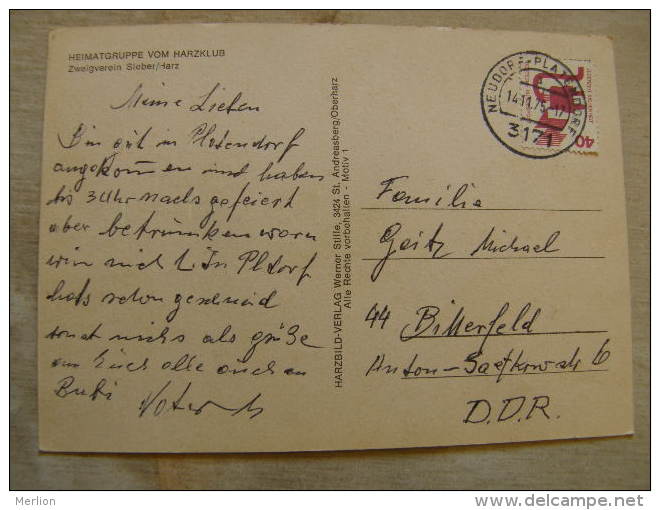 HEIMATGRUPPE VOM HARZKLUB
Zweigverein Sieber/Harz
Meine Lieben
Bin gut in Platendorf
angekommen und haben
bis 3 Uhr nachs gefeiert
aber betrunken waren
wir nich
hats schon geschneid
sonst nichs als grüße
an Euch alle auch an
Bubi Vater
HARZBILD-VERLAG Werner Stille, 3424 St. Andreasberg/Oberharz
Alle Rechte vorbehalten - Motiv 1
NEUDORF-PLATENDORF
14.11.75-17
3171
40
Familie
Geitz Michael
44 Bitterfeld
Anton-Saefkow-str 6
D.D.R.
Merlion
delcampe.net